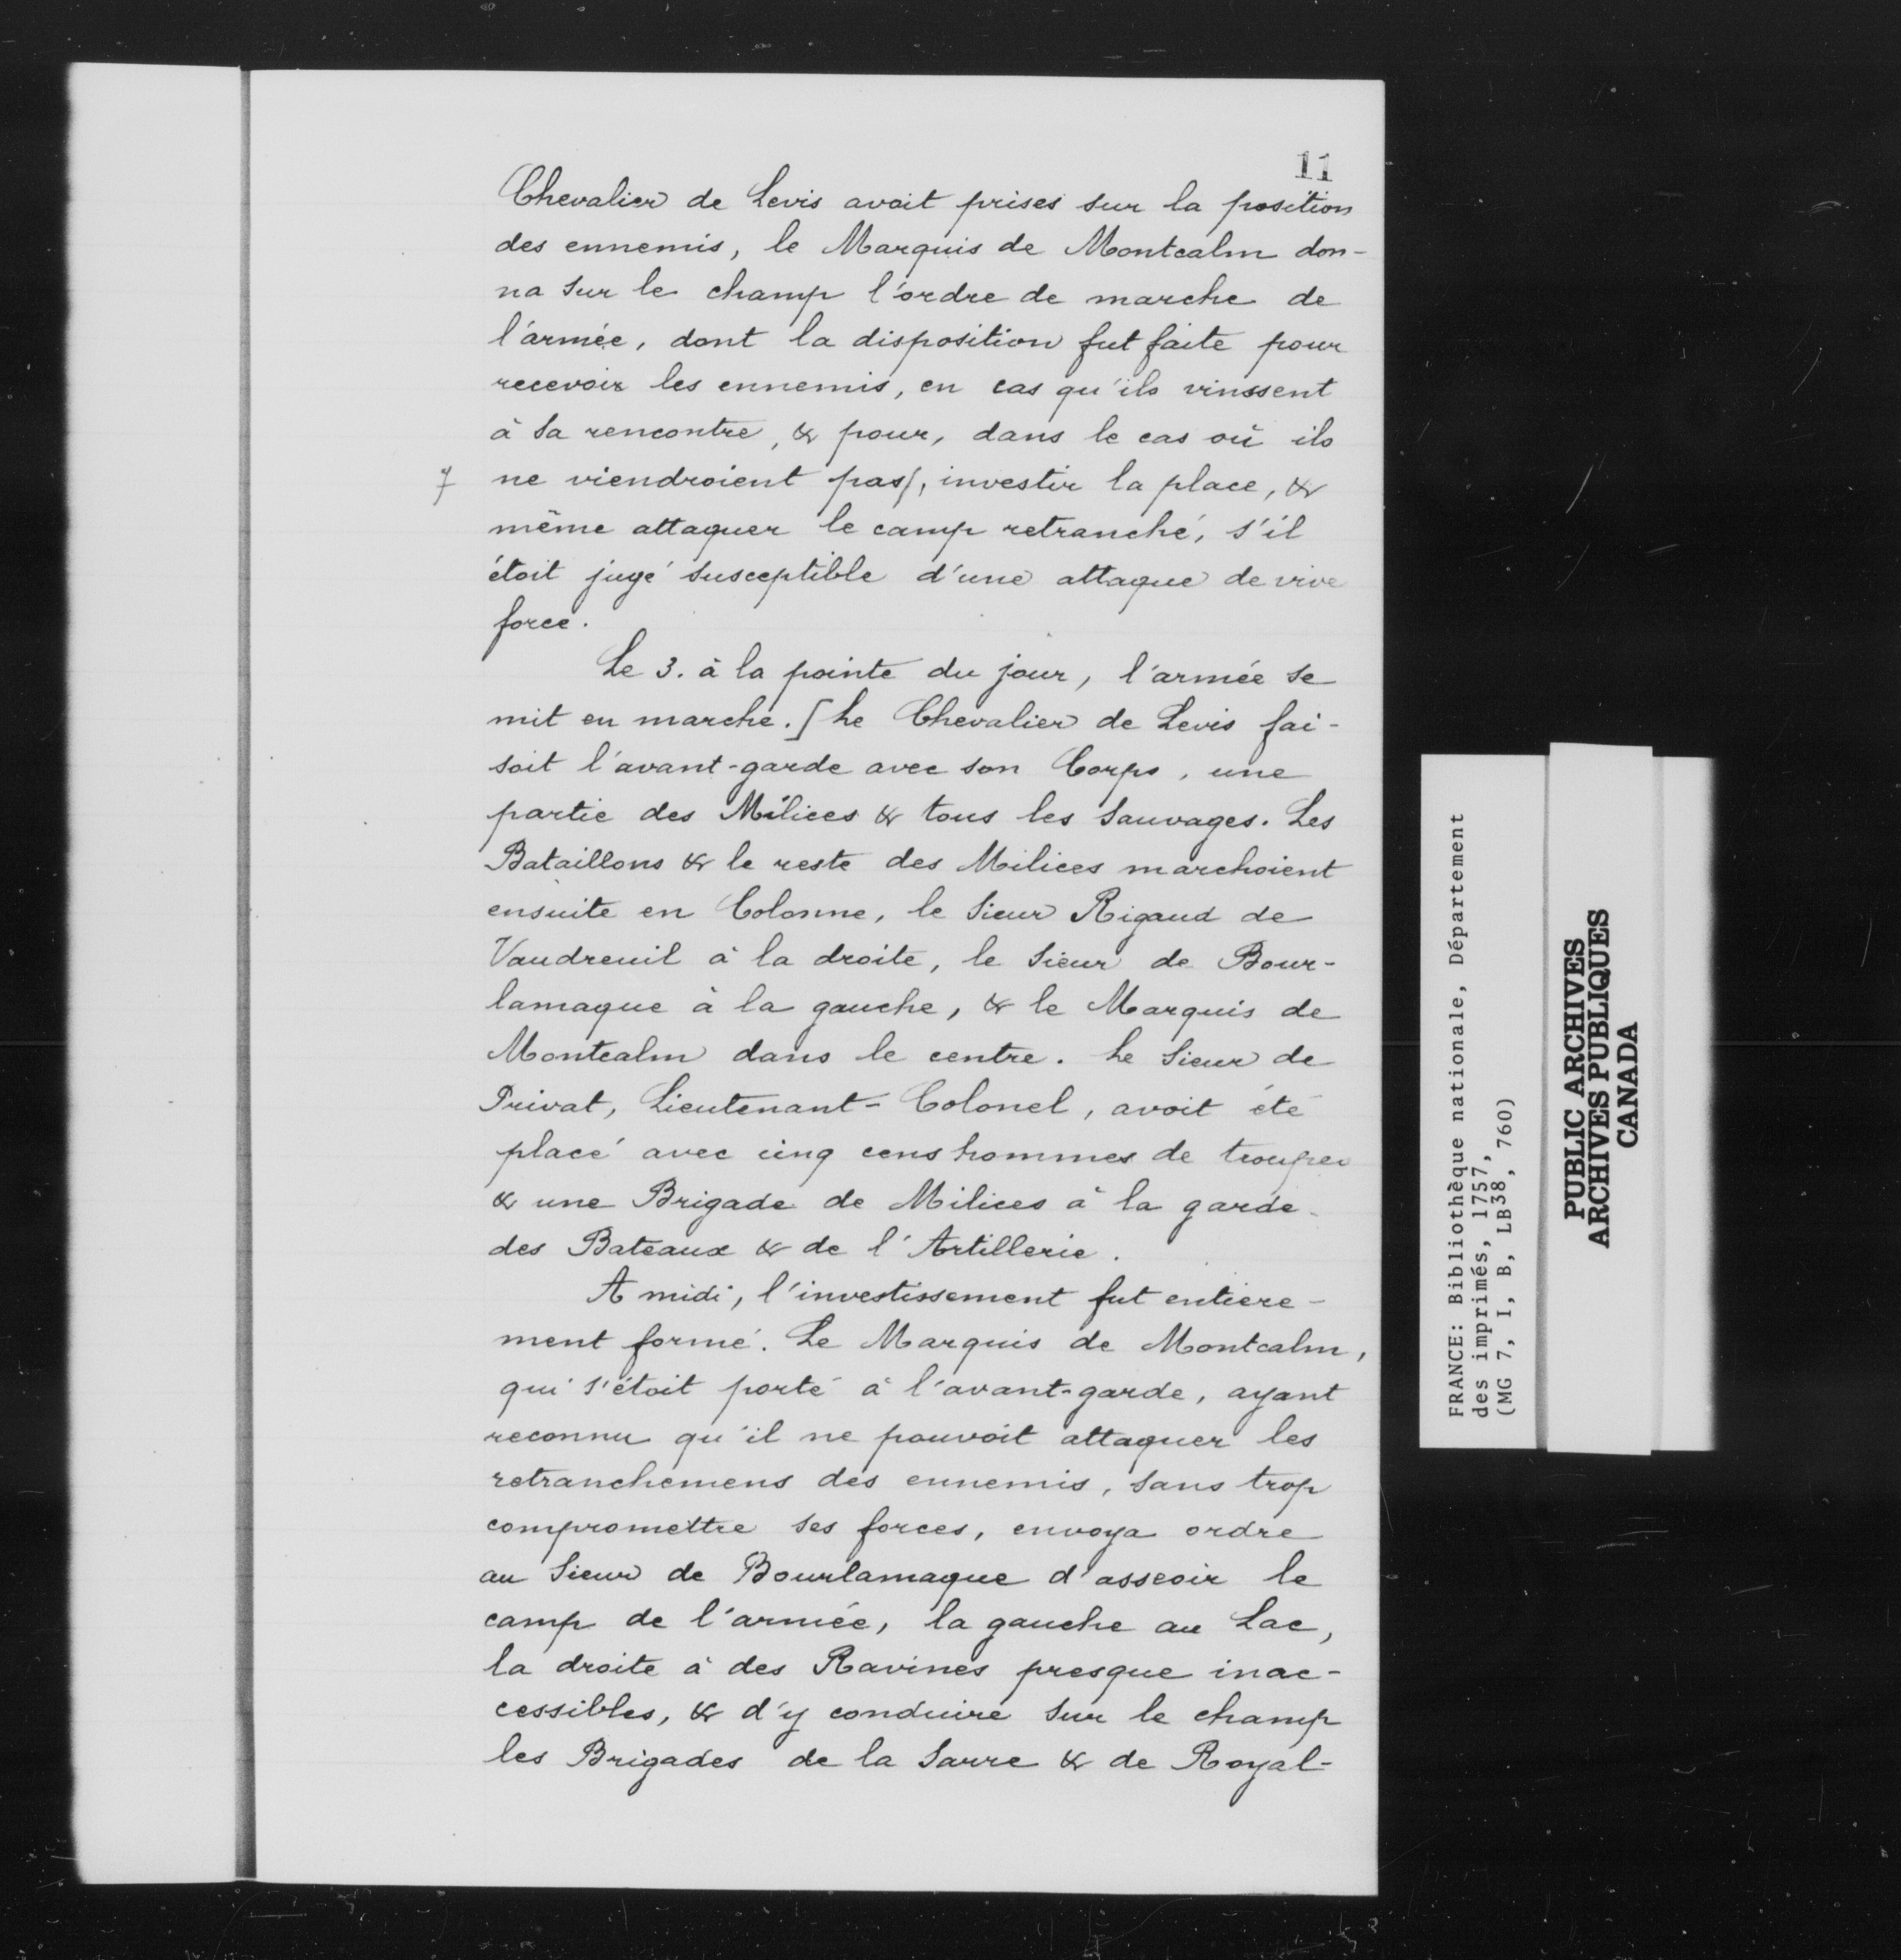 11
Chevalier de Levis avoit prises sur la position
des ennemis, le Marquis de Montcalm don-
na sur le champ l'ordre de marche de
l'armée, dont la disposition fut faite pour
recevoir les ennemis, en cas qu'ils vinssent
à sa rencontre, & pour, dans le cas où ils
7 ne viendroient pas/, investir la place, &
même attaquer le camp retranché, s'il
étoit jugé susceptible d'une attaque de vive
force.
Le 3. à la pointe du jour, l'armée se
mit en marche. [Le Chevalier de Levis fai-
soit l'avant-garde avec son Corps, une
partie des Milices & tous les Sauvages. Les
Bataillons & le reste des Milices marchoient
ensuite en Colonne, le Sieur Rigaud de
Vaudreuil à la droite, le Sieur de Bour-
lamaque à la gauche, & le Marquis de
Montcalm dans le centre. Le Sieur de
Privat, Lieutenant-Colonel, avoit été
placé avec cinq cens hommes de troupes
& une Brigade de Milices à la garde
des Bateaux & de l'Artillerie.
A midi, l'investissement fut entiere-
ment formé. Le Marquis de Montcalm,
qui s'étoit porté à l'avant-garde, ayant
reconnu qu'il ne pouvoit attaquer les
retranchemens des ennemis, sans trop
compromettre ses forces, envoya ordre
au Sieur de Bourlamaque d'asseoir le
camp de l'armée, la gauche au Lac,
la droite à des Ravines presque inac-
cessibles, & d'y conduire sur le champ
les Brigades de la Sarre & de Royal-
FRANCE: Bibliothèque nationale, Département
des imprimés, 1757,
(MG 7, I, B, LB38, 760)
PUBLIC ARCHIVES
ARCHIVES PUBLIQUES
CANADA